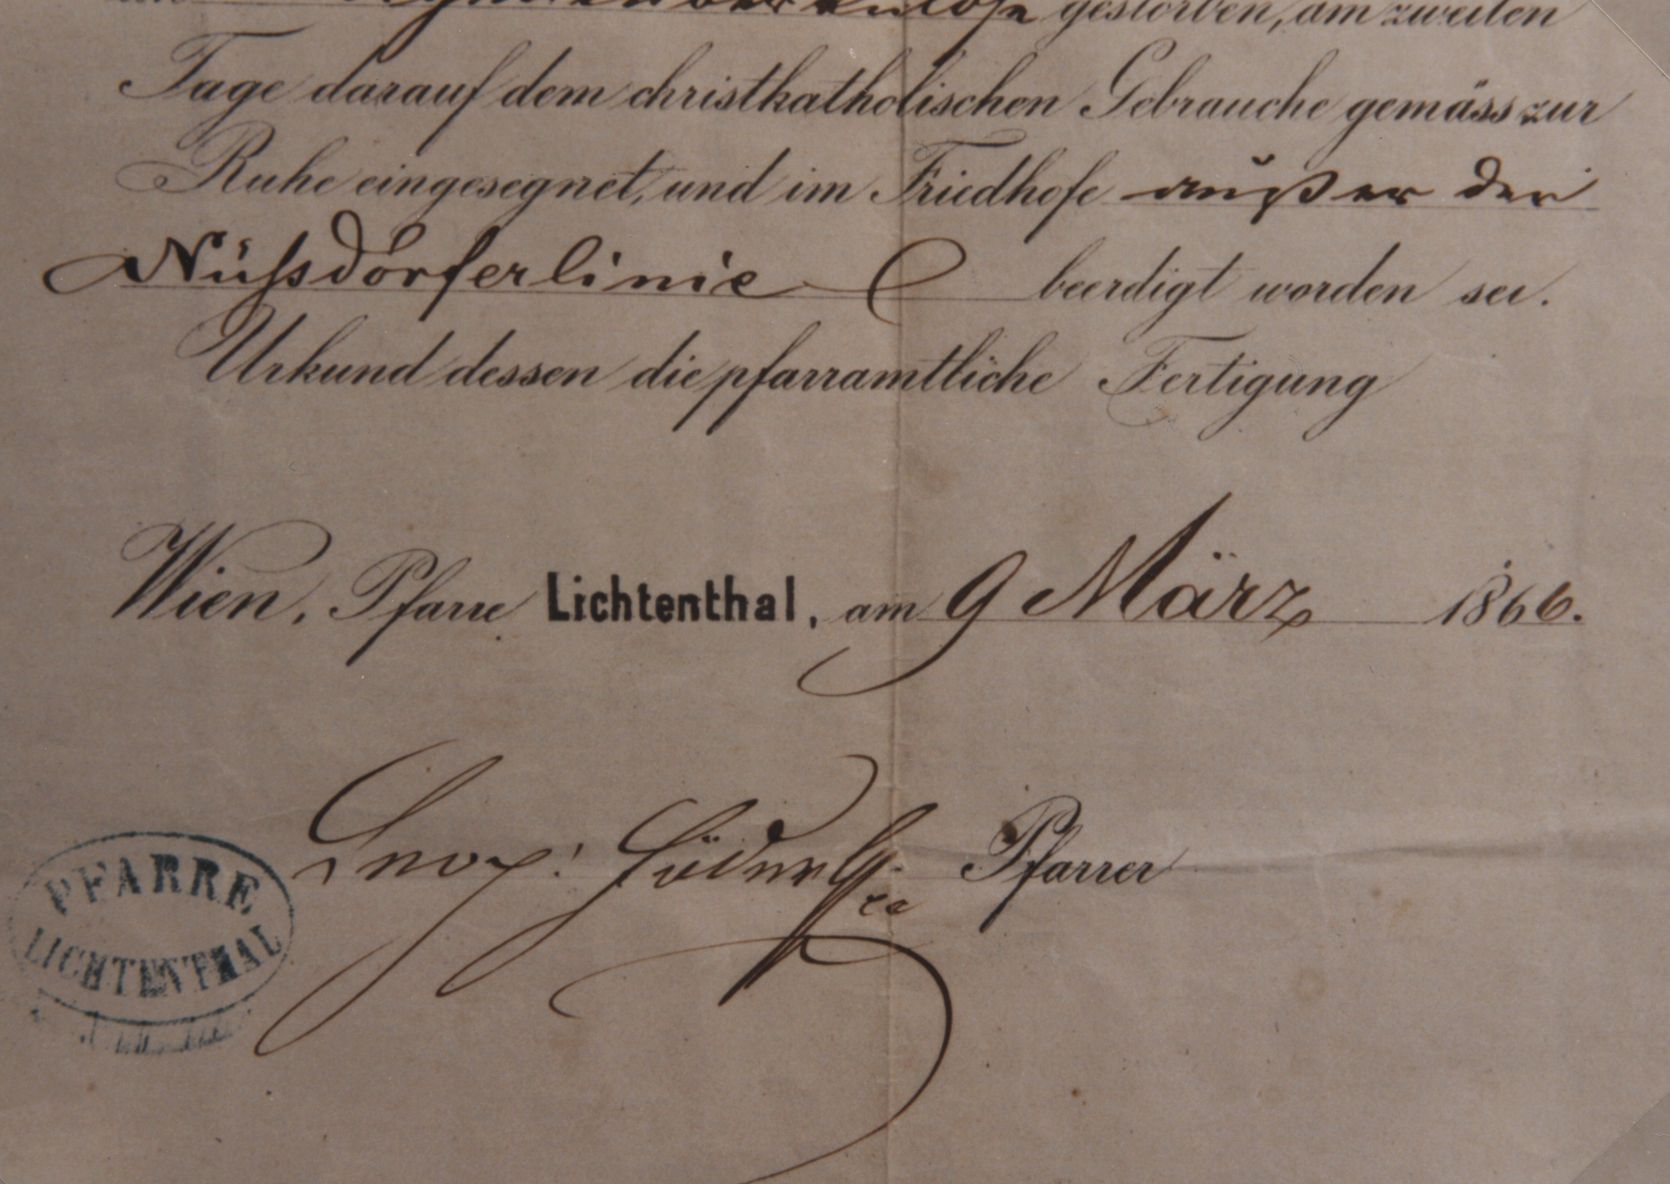 gestorben, am zweiten
Tage darauf dem christkatholischen Gebrauche gemäss zur
Ruhe eingesegnet, und im Friedhofe außer der
Nußdorferlinie beerdigt worden sei.
Urkund dessen die pfarramtliche Fertigung
Wien, Pfarre Lichtenthal, am 9 März 1866.
Leop: Pfarrer
PFARRE
LICHTENTHAL